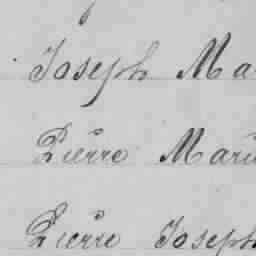 Joseph Ma
Pierre Mari
Pierre Joseph